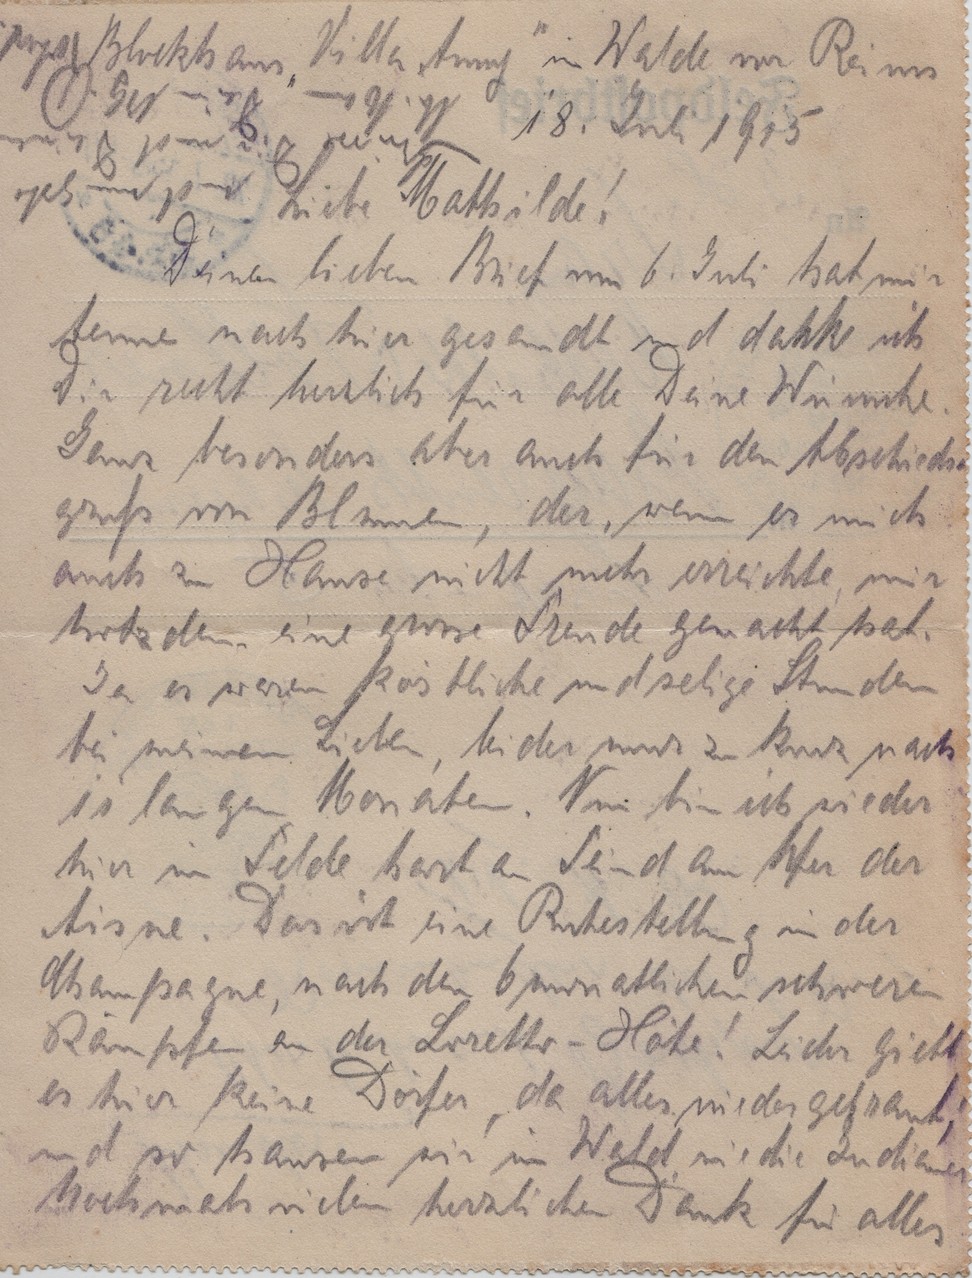 Blockhaus „Villa Anny" im Walde vor Reims
18. Juli 1915
Liebe Mathilde!
Deinen lieben Brief vom 6. Juli hat mir
nach hier gesandt und danke ich
Dir recht herzlich für alle Deine Wünsche.
Ganz besonders aber auch für den Abschieds-
gruß von Blumen, der, wenn er mich
auch zu Hause nicht mehr erreichte, mir
trotzdem eine grosse Freude gemacht hat.
Ja es waren köstliche und selige Stunden
bei meinen Lieben, leider nur zu kurz nach
langen Monaten. Nun bin ich wieder
hier im Felde hart am Feind am Ufer der
Aisne. Das ist eine Ruhestellung in der
Champagne, nach den 6 monatlichen schweren
Kämpfen an der Loretto-Höhe! Leider giebt
es hier keine Dörfer, da alles niedergebrannt,
und so hausen wir im Wald wie die Indianer
Nochmals vielen herzlichen Dank für alles